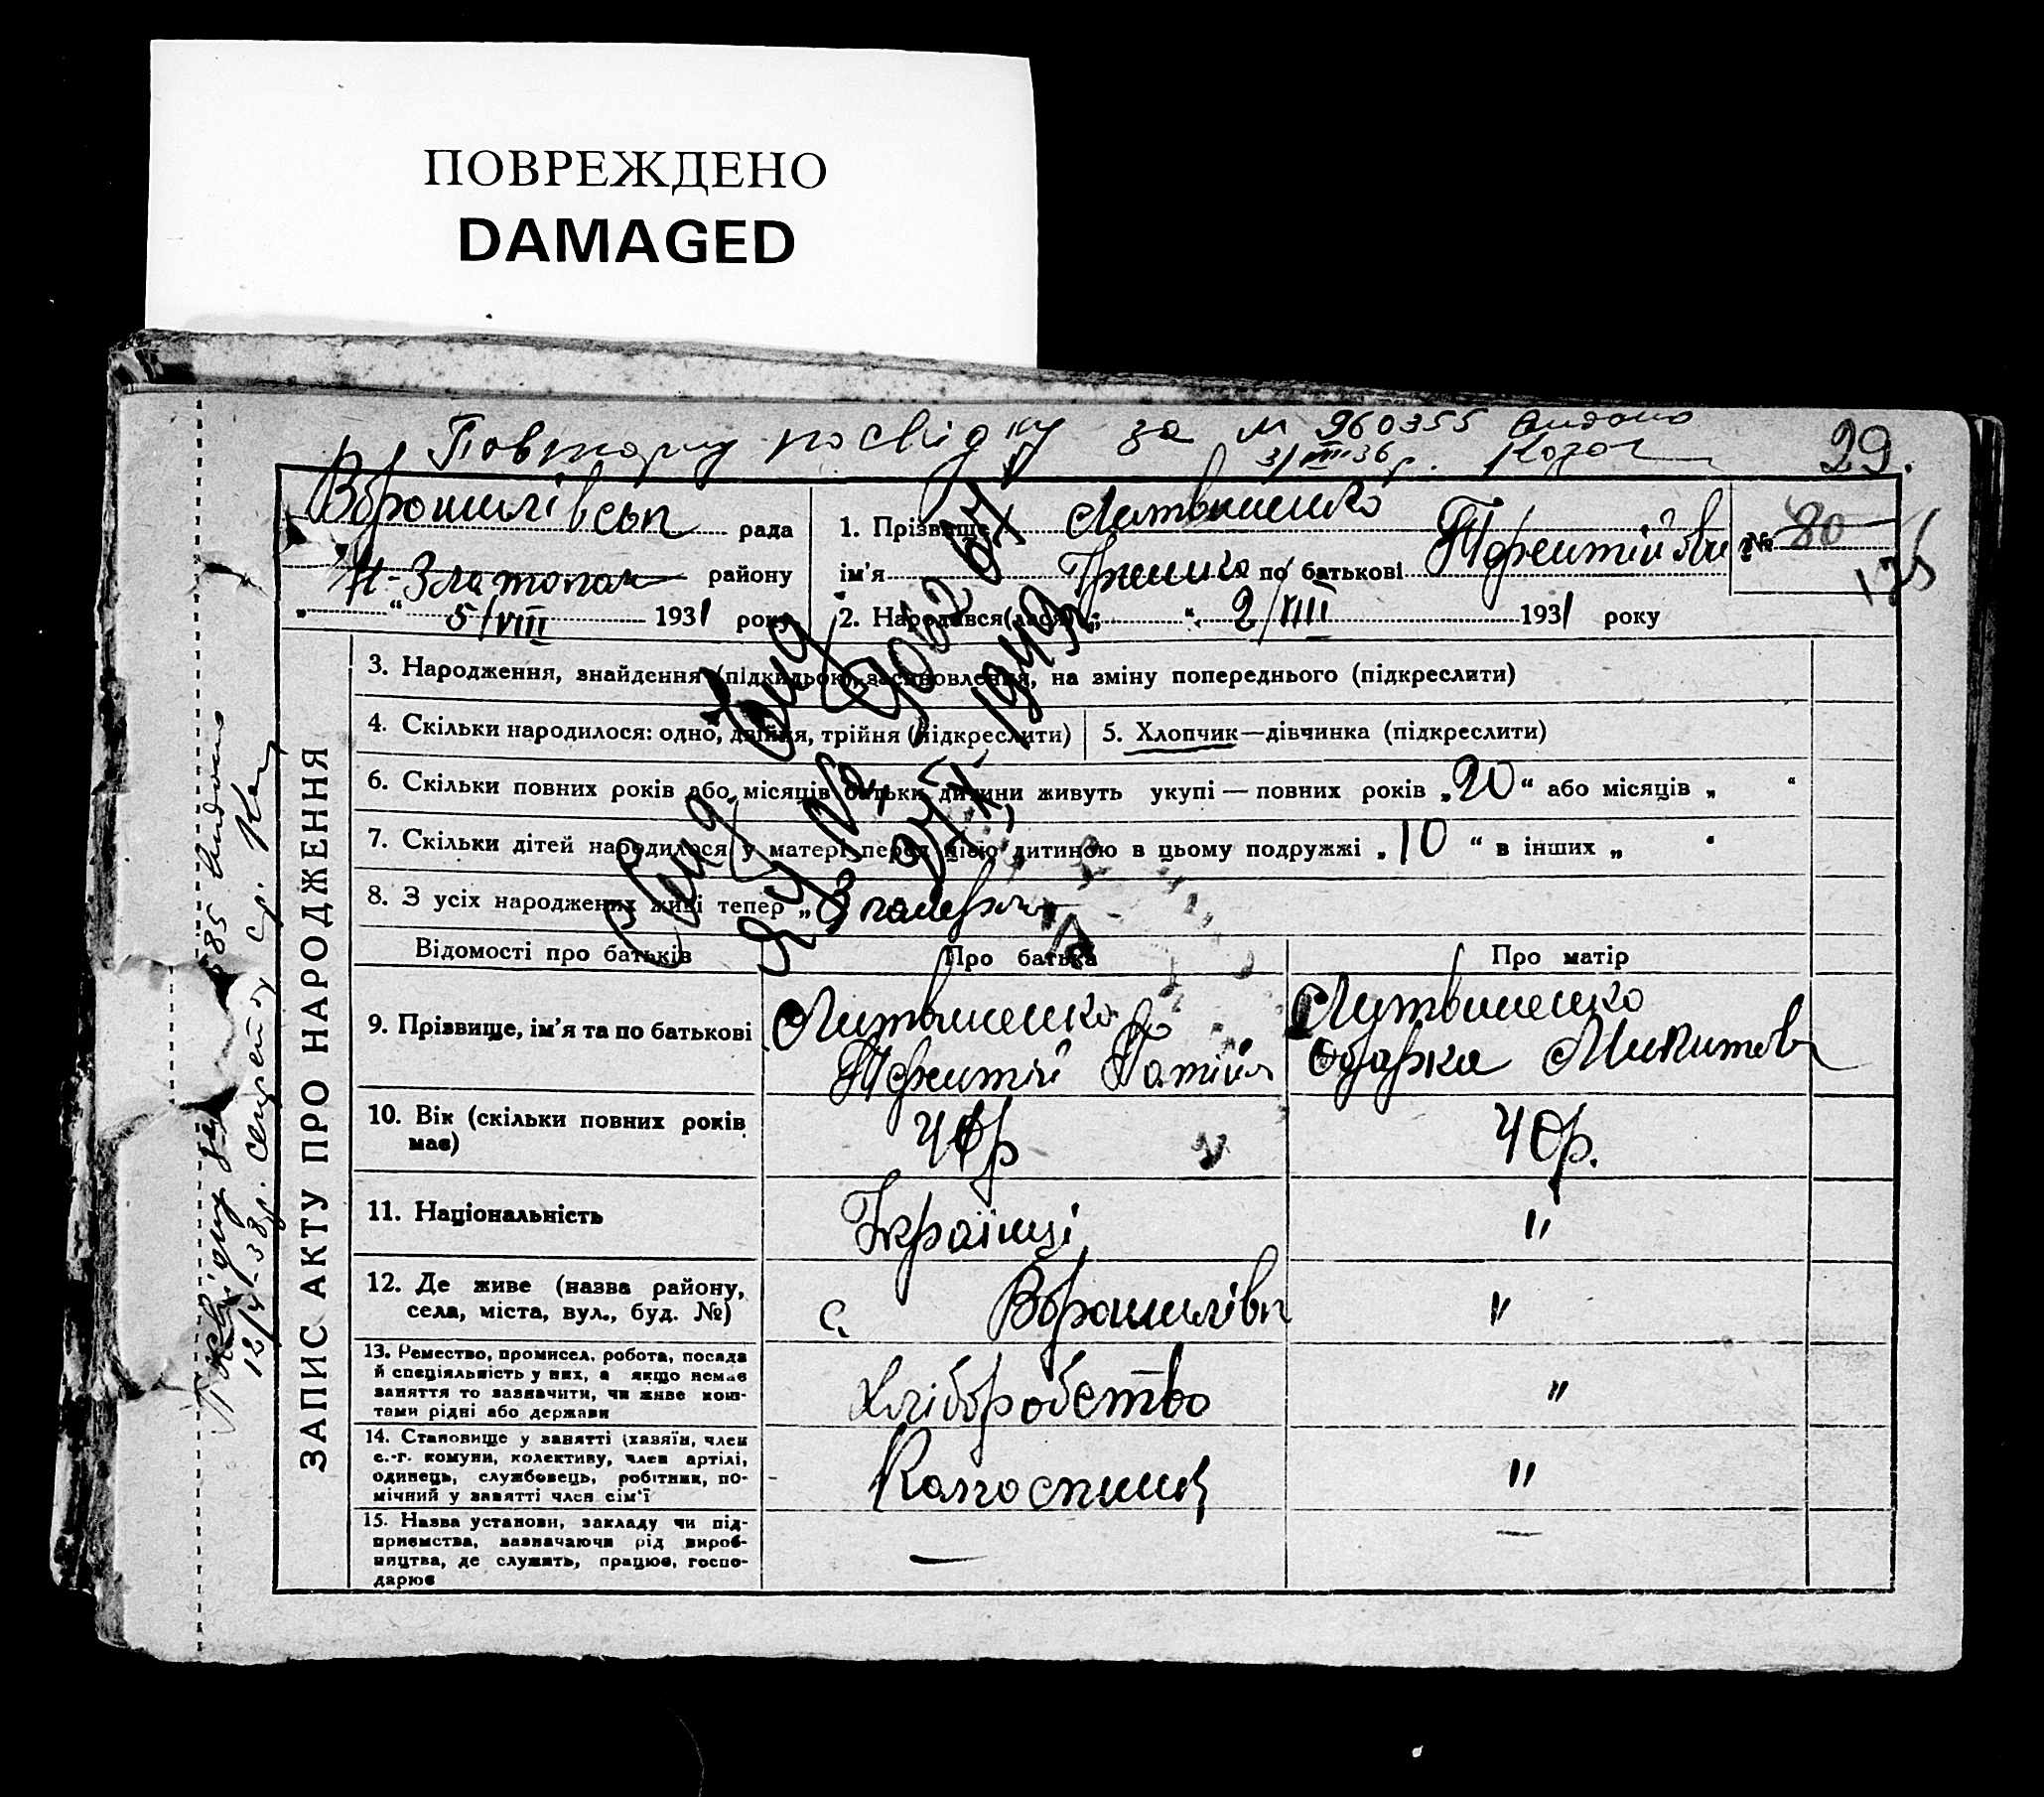 ПОВРЕЖДЕНО
DAMAGED
Повторну посвідку за № 960355 видано
31/VIII 36 р.
29.
Ворошилівськ рада
Н-Златопол району
„ “ 5/VIII 1931 року
1. Прізвище Литвиненко
ім'я Гришко по батькові Терентійов
2. Народився(лася) „ “ 2/VIII 1931 року
№ 80
ЗАПИС АКТУ ПРО НАРОДЖЕННЯ
3. Народження, знайдення (підкидьок), засиновлення, на зміну попереднього (підкреслити)
4. Скільки народилося: одно, двійня, трійня (підкреслити)
5. Хлопчик—дівчинка (підкреслити)
6. Скільки повних років або місяців батьки дитини живуть укупі — повних років „20“ або місяців „ “
7. Скільки дітей народилося у матері перед цією дитиною в цьому подружжі „10“ в інших „ “
8. З усіх народжених живі тепер „3 померло
Відомості про батьків
Про батька
Про матір
9. Прізвище, ім'я та по батькові
Литвиненко
Терентій
Литвиненко
Одарка Микитов
10. Вік (скільки повних років
має)
40р.
11. Національність
Українці
"
12. Де живе (назва району,
села, міста, вул., буд. №)
с. Ворошилівк
"
13. Ремество, промисел, робота, посада
й спеціяльність у них, а якщо немає
заняття то зазначити, чи живе кош-
тами рідні або держави
Хліборобство
"
14. Становище у занятті (хазяїн, член
с.-г. комуни, колективу, член артілі,
одинець, службовець, робітник, по-
мічний у занятті член сім'ї
Колгоспник
"
15. Назва установи, закладу чи під-
приємства, зазначаючи рід вироб-
ництва, де служить, працює, госпо-
дарює
—
—